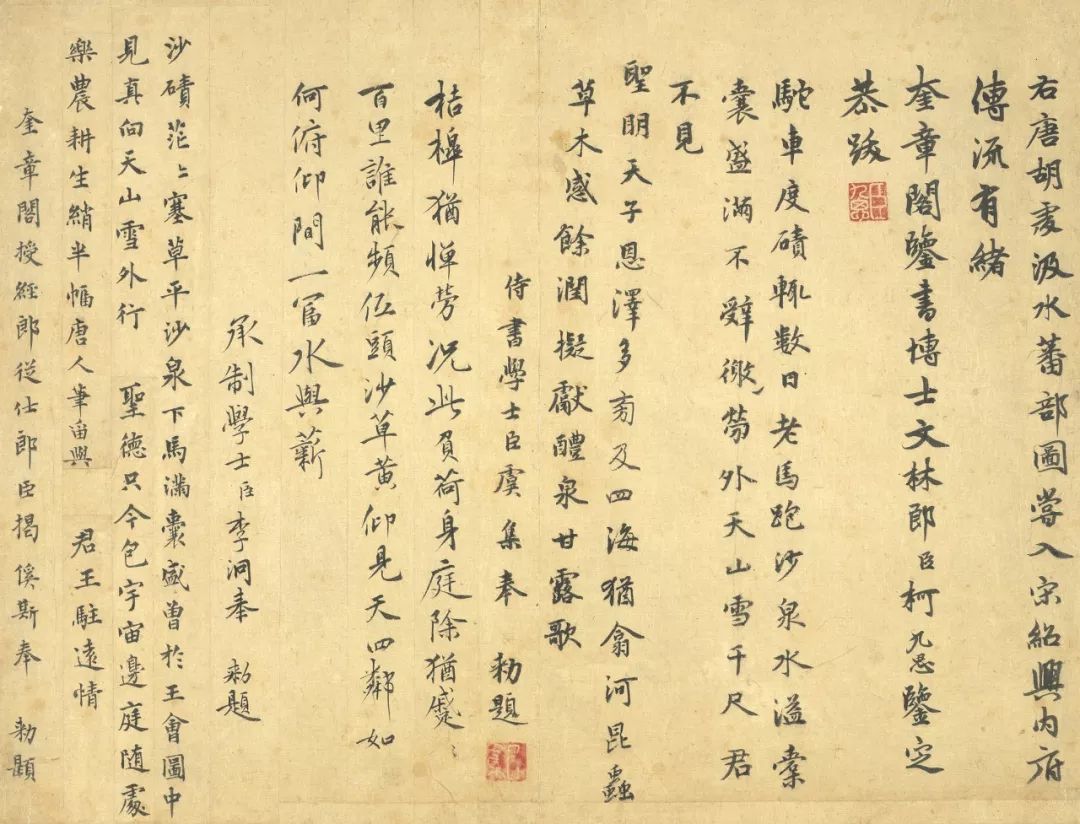 右唐胡虔汲水蕃部圖嘗入宋紹興內府
傳流有緒
奎章閣鑒書博士文林郎臣柯九思鑒定
恭跋
駝車度磧輒數日老馬跑沙泉水溢橐
囊盛滿不辭微勞外天山雪千尺君
不見
聖明天子恩澤多旁及四海猶翕河昆蟲
草木感餘潤擬獻醴泉甘露歌
侍書學士臣虞集奉 勑題
桔槔猶憚勞況此負荷身庭除猶蹙〻
百里誰能頻伍頭沙草黃仰見天四鄰如
何俯仰間一富水與薪
承制學士臣李泂奉 勑題
沙磧茫〻塞草平沙泉下馬滿囊盛曾於王會圖中
見真向天山雪外行 聖德只今包宇宙邊庭隨處
樂農耕生綃半幅唐人筆留與 君王駐遠情
奎章閣授經郎從仕郎臣揭傒斯奉 勑題